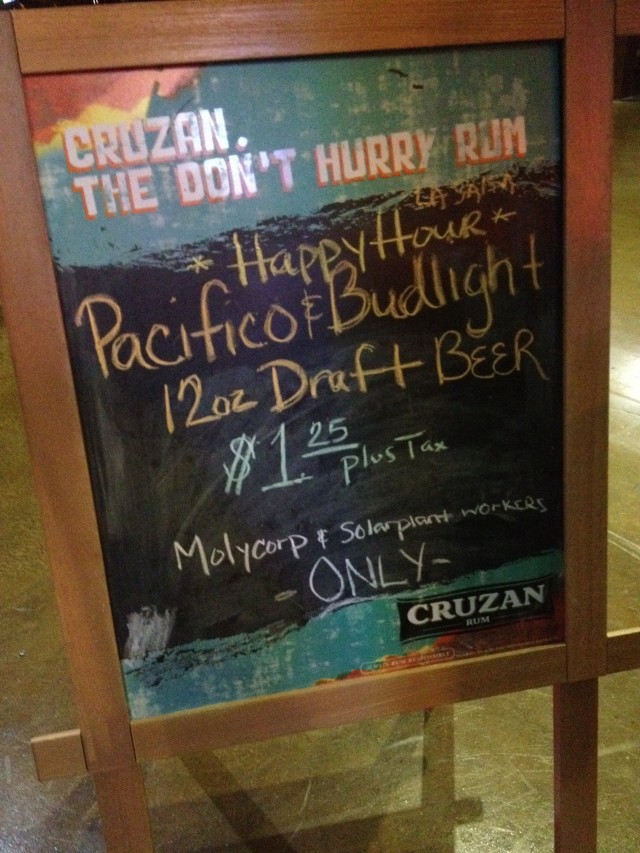 CRUZAN.
THE DON'T HURRY RUM
LA SALSA
* Happy Hour *
Pacifico & Budlight
12oz Draft BEER
$1.25 plus Tax
Molycorp & Solarplant workers
- ONLY -
CRUZAN
RUM